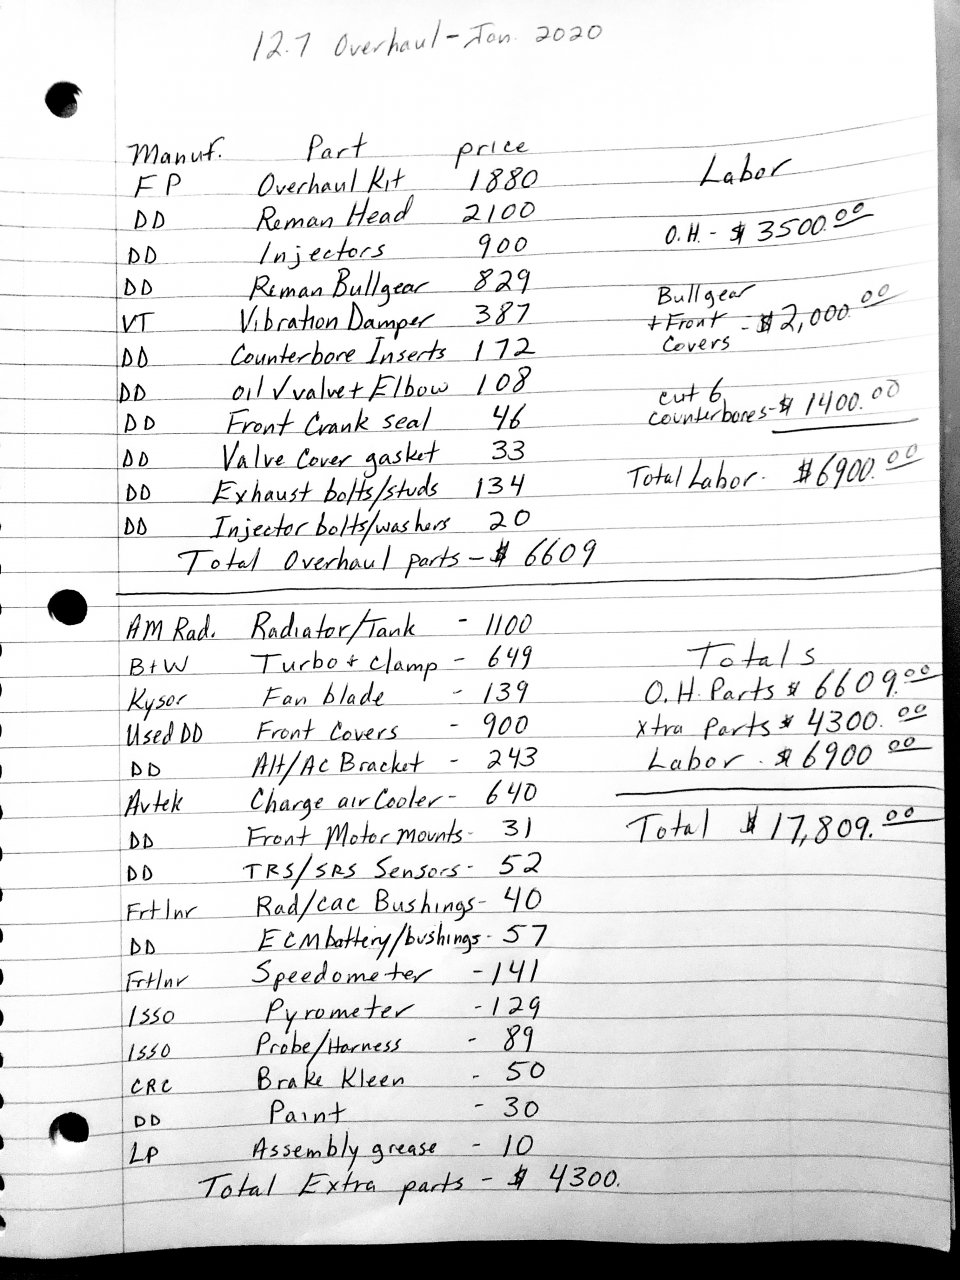 12.7 Overhaul - Jan. 2020
Manuf. Part price
FP Overhaul Kit 1880
DD Reman Head 2100
DD Injectors 900
DD Reman Bullgear 829
VT Vibration Damper 387
DD Counterbore Inserts 172
DD oil √ valve + Elbow 108
DD Front Crank seal 46
DD Valve Cover gasket 33
DD Exhaust bolts/studs 134
DD Injector bolts/washers 20
Total Overhaul parts - $ 6609
Labor
O.H. - $ 3500.00
Bullgear
+ Front - $2,000.00
Covers
cut 6
counterbores - $ 1400.00
Total Labor. $6900.00
AM Rad. Radiator/Tank - 1100
B+W Turbo + Clamp - 649
Kysor Fan blade - 139
Used DD Front Covers - 900
DD Alt/Ac Bracket - 243
Avtek Charge air Cooler - 640
DD Front Motor mounts - 31
DD TRS/SRS Sensors - 52
Frtlnr Rad/cac Bushings - 40
DD ECM battery/bushings - 57
Frtlnr Speedometer - 141
ISSO Pyrometer - 129
ISSO Probe/Harness - 89
CRC Brake Kleen - 50
DD Paint - 30
LP Assembly grease - 10
Total Extra parts - $ 4300.
Totals
O.H. Parts $ 6609.00
Xtra Parts $ 4300.00
Labor. $ 6900 00
Total $ 17,809.00